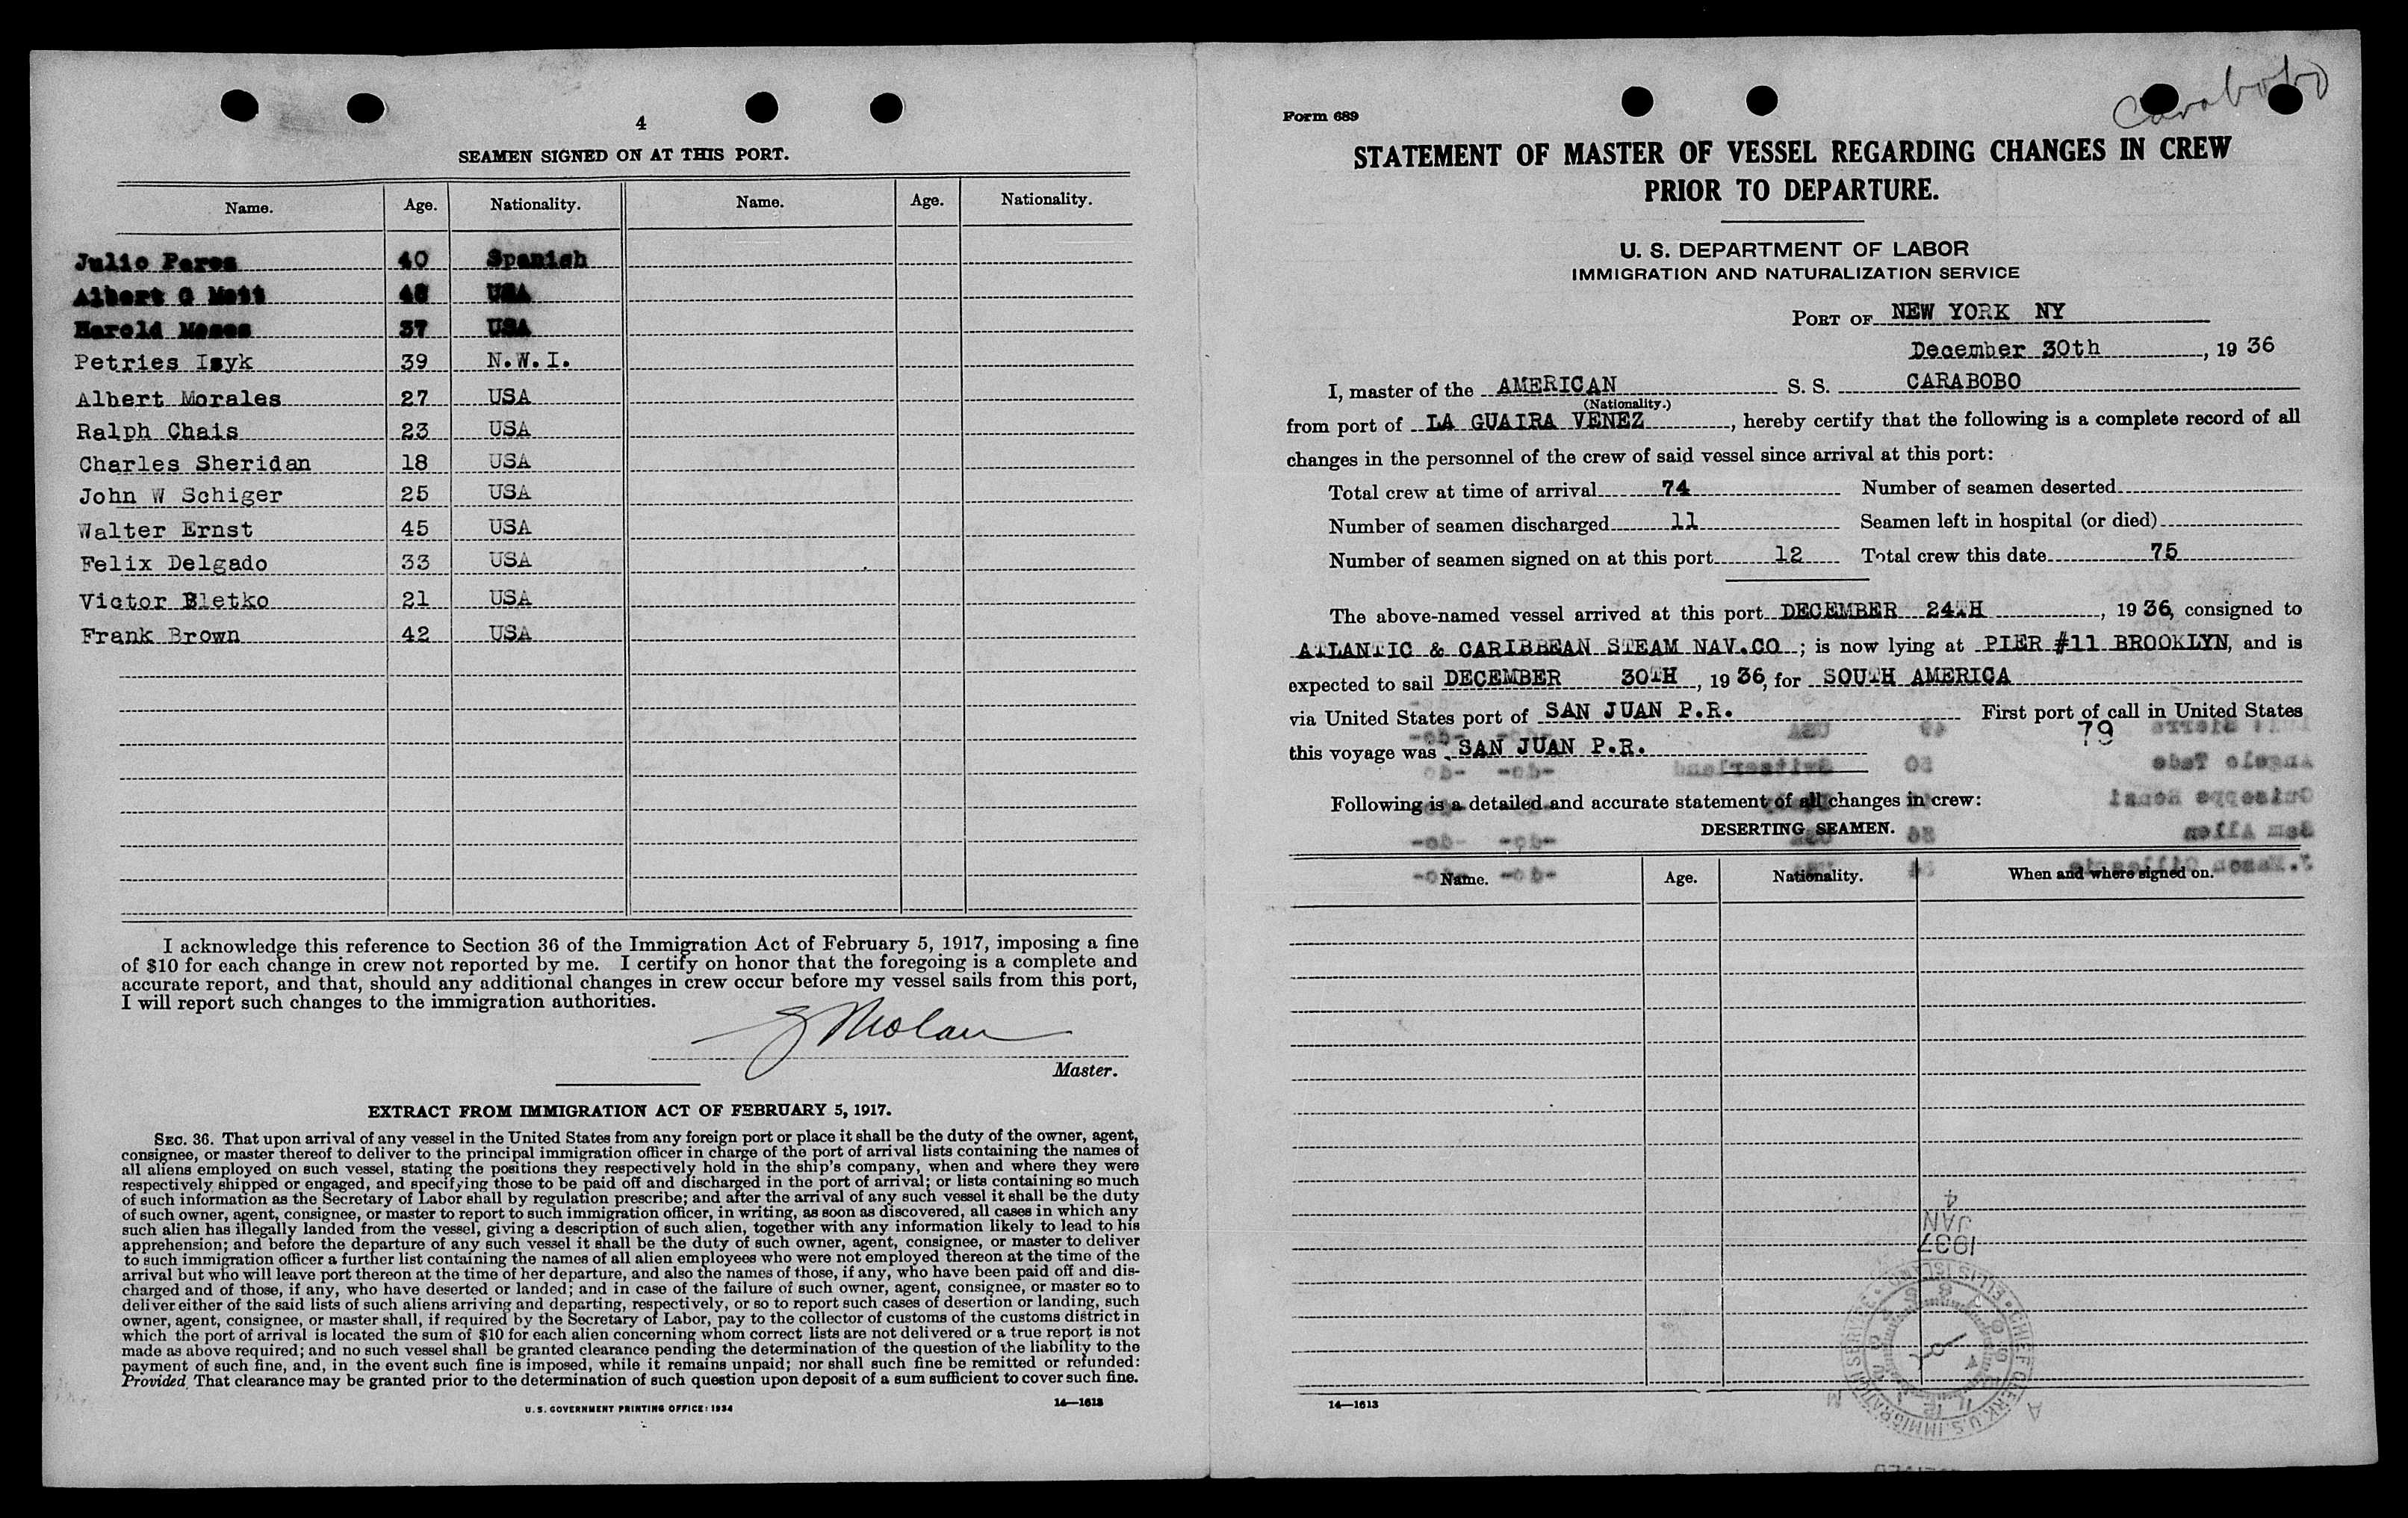 4
SEAMEN SIGNED ON AT THIS PORT.
Name. Age. Nationality. Name. Age. Nationality.
Julio Peres 40 Spanish
Albert G Mott 48 USA
Harold Moses 37 USA
Petries Isyk 39 N.W.I.
Albert Morales 27 USA
Ralph Chais 23 USA
Charles Sheridan 18 USA
John W Schiger 25 USA
Walter Ernst 45 USA
Felix Delgado 33 USA
Victor Bletko 21 USA
Frank Brown 42 USA
I acknowledge this reference to Section 36 of the Immigration Act of February 5, 1917, imposing a fine
of $10 for each change in crew not reported by me. I certify on honor that the foregoing is a complete and
accurate report, and that, should any additional changes in crew occur before my vessel sails from this port,
I will report such changes to the immigration authorities.
Master.
EXTRACT FROM IMMIGRATION ACT OF FEBRUARY 5, 1917.
SEC. 36. That upon arrival of any vessel in the United States from any foreign port or place it shall be the duty of the owner, agent,
consignee, or master thereof to deliver to the principal immigration officer in charge of the port of arrival lists containing the names of
all aliens employed on such vessel, stating the positions they respectively hold in the ship's company, when and where they were
respectively shipped or engaged, and specifying those to be paid off and discharged in the port of arrival; or lists containing so much
of such information as the Secretary of Labor shall by regulation prescribe; and after the arrival of any such vessel it shall be the duty
of such owner, agent, consignee, or master to report to such immigration officer, in writing, as soon as discovered, all cases in which any
such alien has illegally landed from the vessel, giving a description of such alien, together with any information likely to lead to his
apprehension; and before the departure of any such vessel it shall be the duty of such owner, agent, consignee, or master to deliver
to such immigration officer a further list containing the names of all alien employees who were not employed thereon at the time of the
arrival but who will leave port thereon at the time of her departure, and also the names of those, if any, who have been paid off and dis-
charged and of those, if any, who have deserted or landed; and in case of the failure of such owner, agent, consignee, or master so to
deliver either of the said lists of such aliens arriving and departing, respectively, or so to report such cases of desertion or landing, such
owner, agent, consignee, or master shall, if required by the Secretary of Labor, pay to the collector of customs of the customs district in
which the port of arrival is located the sum of $10 for each alien concerning whom correct lists are not delivered or a true report is not
made as above required; and no such vessel shall be granted clearance pending the determination of the question of the liability to the
payment of such fine, and, in the event such fine is imposed, while it remains unpaid; nor shall such fine be remitted or refunded:
Provided, That clearance may be granted prior to the determination of such question upon deposit of a sum sufficient to cover such fine.
U. S. GOVERNMENT PRINTING OFFICE: 1934 14—1613
Carabobo
Form 689
STATEMENT OF MASTER OF VESSEL REGARDING CHANGES IN CREW
PRIOR TO DEPARTURE.
U. S. DEPARTMENT OF LABOR
IMMIGRATION AND NATURALIZATION SERVICE
PORT OF NEW YORK NY
December 30th, 19 36
I, master of the AMERICAN S. S. CARABOBO
(Nationality.)
from port of LA GUAIRA VENEZ, hereby certify that the following is a complete record of all
changes in the personnel of the crew of said vessel since arrival at this port:
Total crew at time of arrival 74 Number of seamen deserted
Number of seamen discharged 11 Seamen left in hospital (or died)
Number of seamen signed on at this port 12 Total crew this date 75
The above-named vessel arrived at this port DECEMBER 24TH, 19 36, consigned to
ATLANTIC & CARIBBEAN STEAM NAV.CO; is now lying at PIER #11 BROOKLYN, and is
expected to sail DECEMBER 30TH, 19 36, for SOUTH AMERICA
via United States port of SAN JUAN P.R. First port of call in United States
79
this voyage was SAN JUAN P.R.
Following is a detailed and accurate statement of all changes in crew:
DESERTING SEAMEN.
Name. Age. Nationality. When and where signed on.
4
JAN
1937
CHIEF CLERK, U.S. IMMIGRATION SERVICE ELLIS ISLAND
14—1613